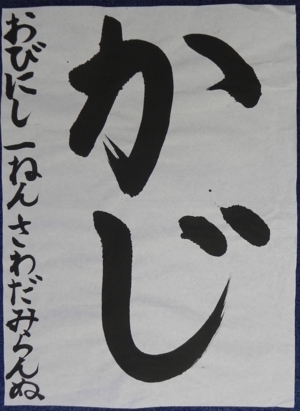 かじ
おびにし一ねんさわだみらんぬ